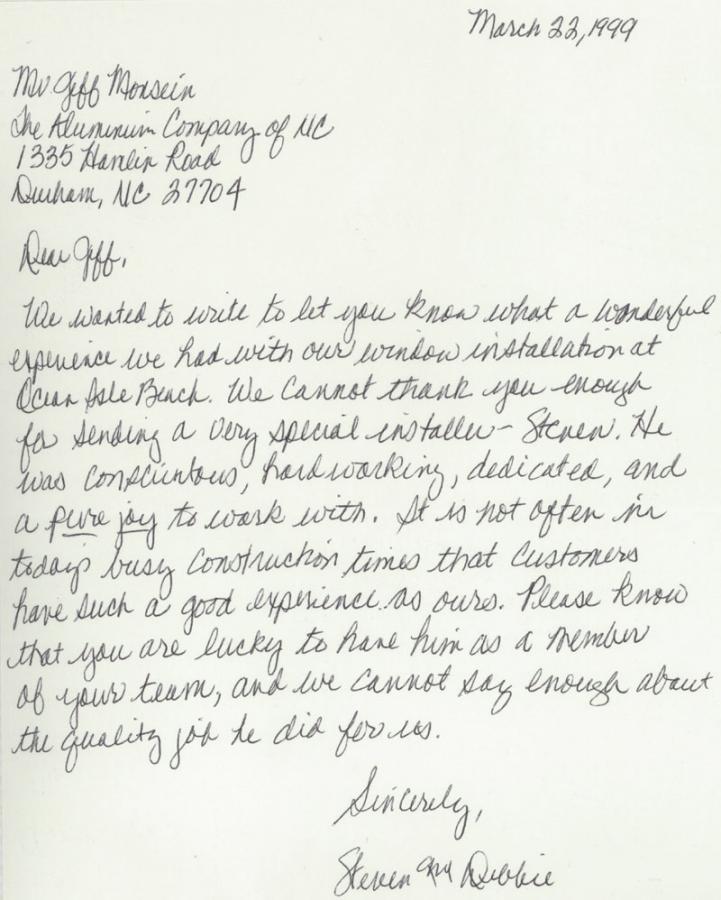 March 22, 1999
Mr Jeff Monsein
The Aluminum Company of NC
1335 Hamlin Road
Durham, NC 27704
Dear Jeff,
We wanted to write to let you know what a wonderful
experience we had with our window installation at
Ocean Isle Beach. We cannot thank you enough
for sending a very special installer - Steven. He
was conscientous, hardworking, dedicated, and
a pure joy to work with. It is not often in
today's busy construction times that customers
have such a good experience as ours. Please know
that you are lucky to have him as a member
of your team, and we cannot say enough about
the quality job he did for us.
Sincerely,
Steven and Debbie